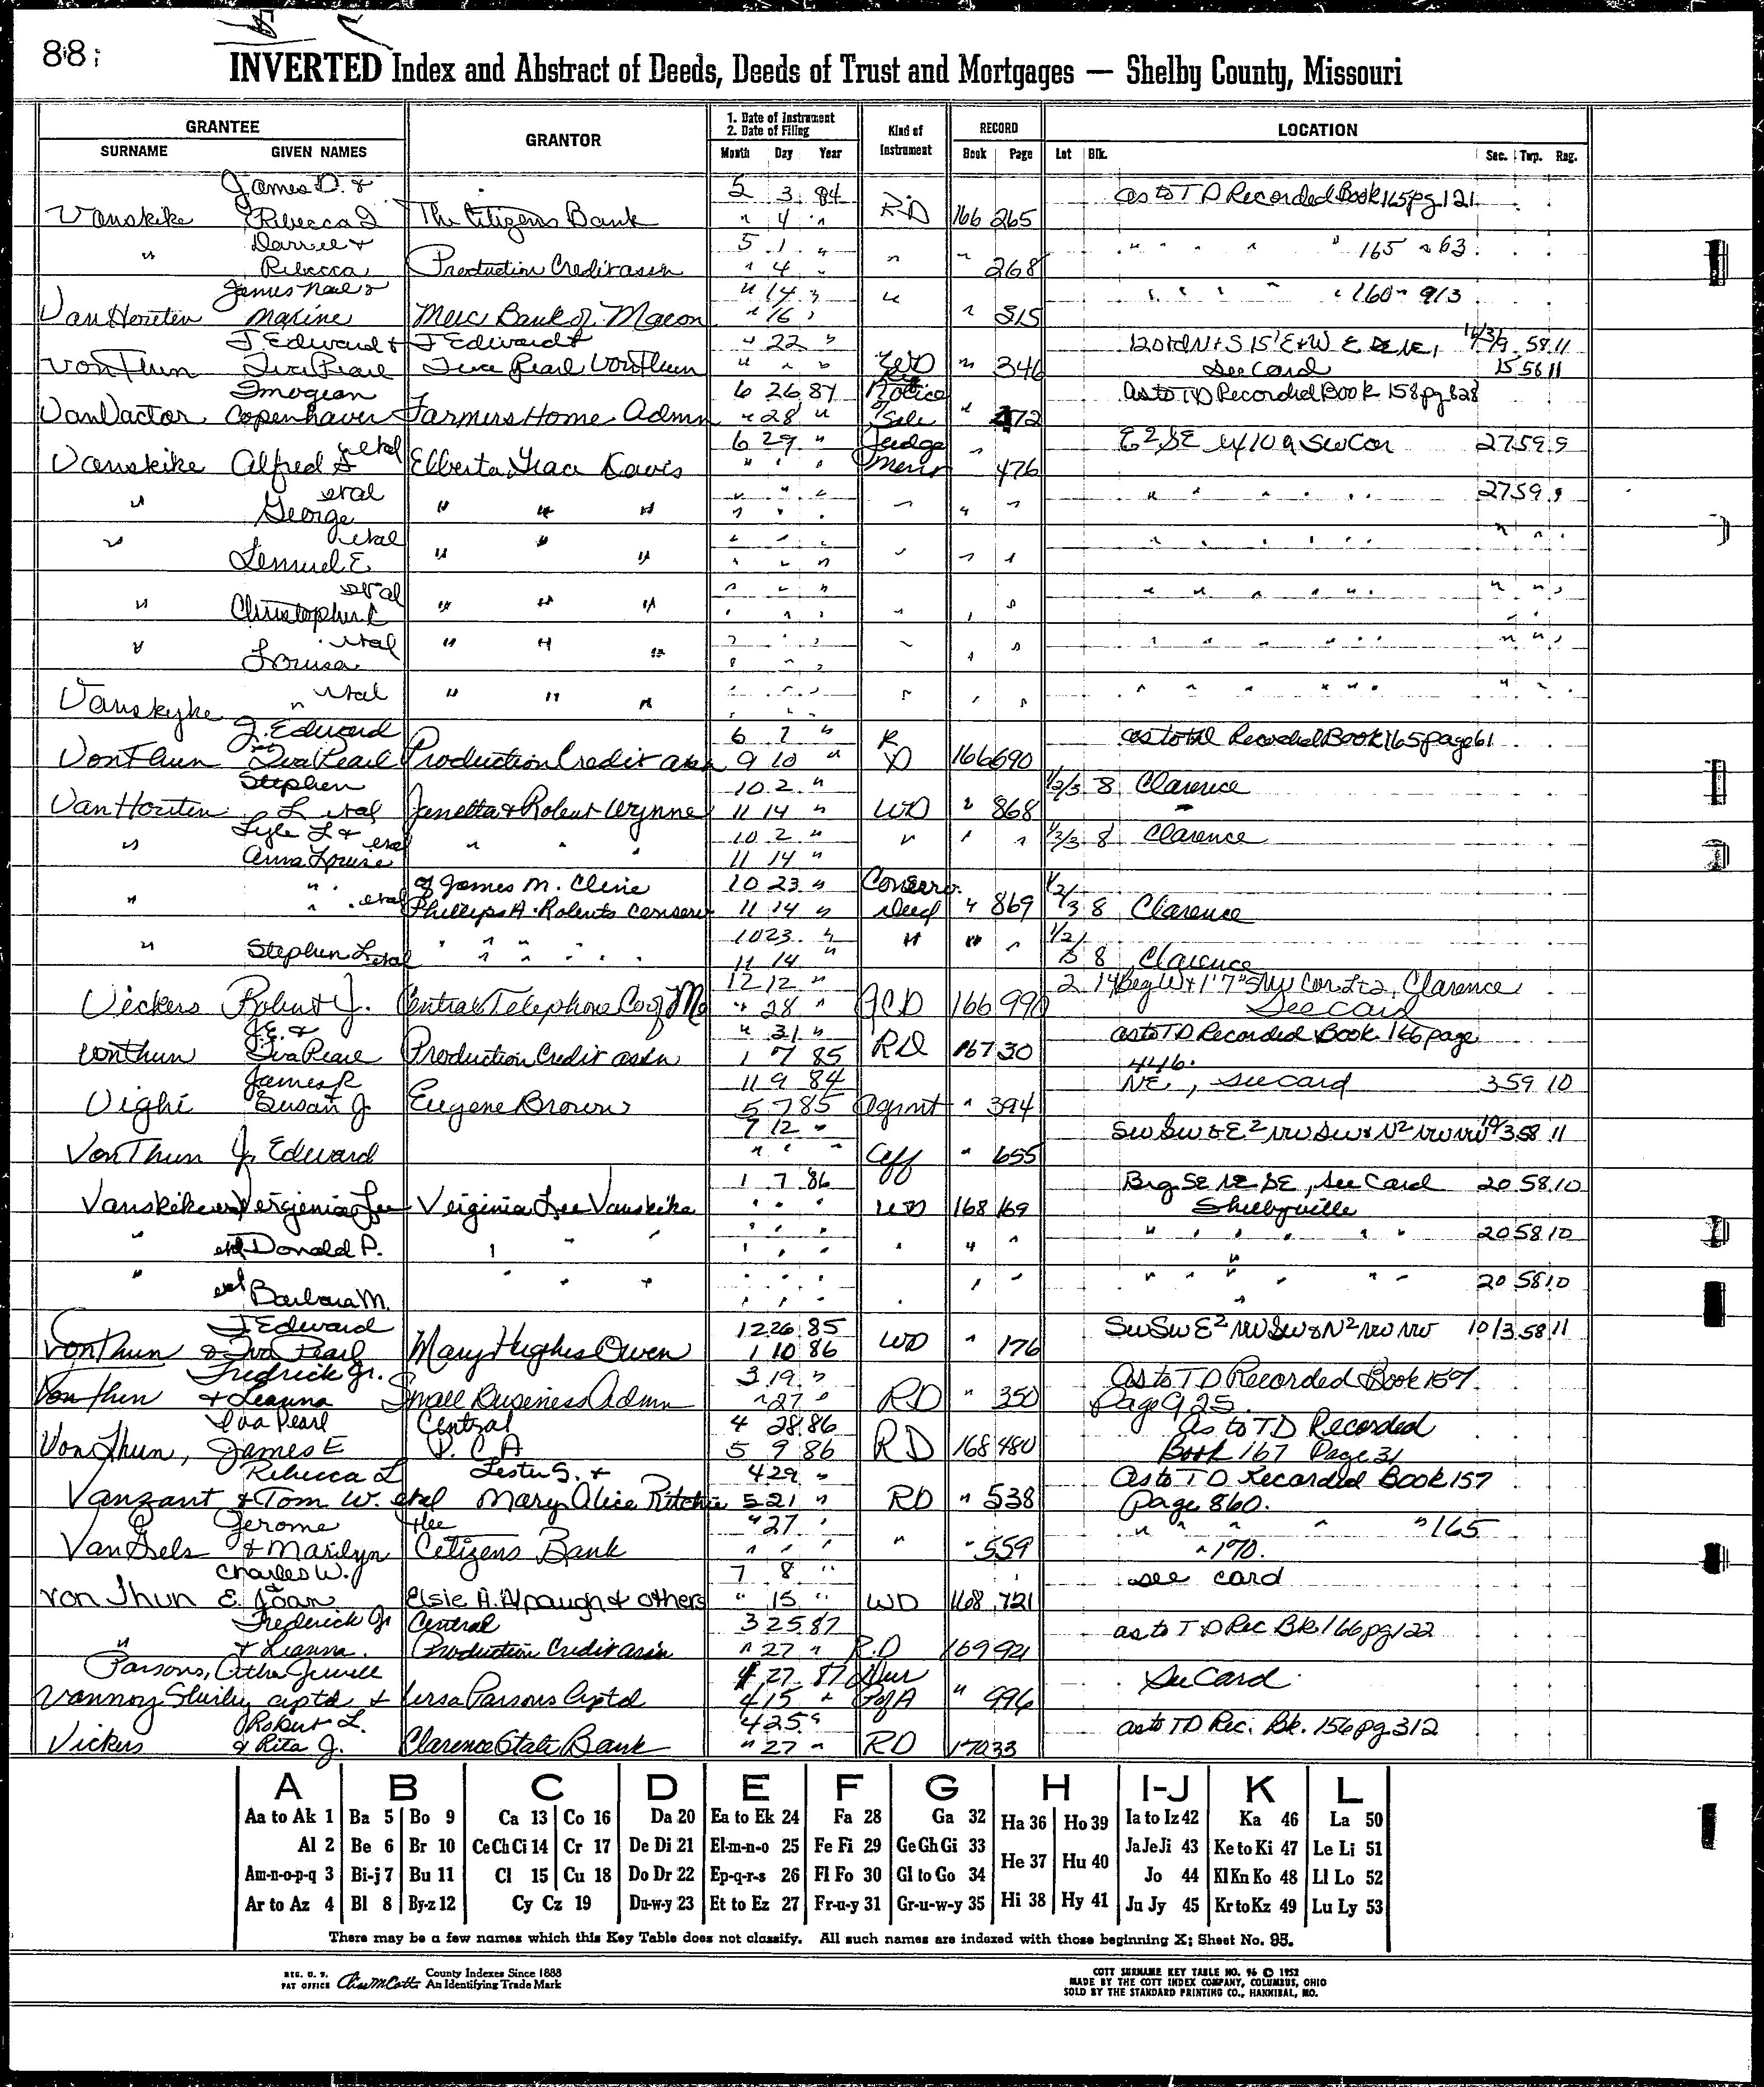 88
INVERTED Index and Abstract of Deeds, Deeds of Trust and Mortgages — Shelby County, Missouri
GRANTEE GRANTOR 1. Date of Instrument 2. Date of Filing Kind of Instrument RECORD LOCATION
SURNAME GIVEN NAMES Month Day Year Book Page Lot Blk. Sec. Twp. Rng.
James D. & 5 3 84 as to T D Recorded Book 165 pg 121
Vanskike Rebecca The Citizens Bank " 4 " RD 166 265
Darrel & 5 1 " " " " " " 165 " 63
" Rebecca Production Credit assn " 4 " " " 268
James Neal & " 14 " " " " " " 160 " 913
VanHouten Maxine Merc Bank of Macon " 16 " " " 315
J Edward & J Edward & " 22 " 58 11
VonThun Iva Pearl Iva Pearl VonThun " " " WD " 346 See Card 15 56 11
Imogean 6 26 84 Notice of as to TD Recorded Book 158 pg 828
VanVactor Copenhaver Farmers Home Admn " 28 " Sale " 472
etal 6 29 " Judge E2 SE 10 a SW Cor 27 59 9
Vanskike Alfred Elberta Grace Davis " " " ment " 476
etal " " " " " " " " " 27 59 9
" George " " " " " " " " "
etal " " " " " " " " " " " "
" Lemuel E. " " " " " " " " "
etal " " " " " " " " " " " "
" Christopher C " " " " " " " " "
" etal " " " " " " " " " " " "
Louisa
" etal " " " " " " " " " " " "
Vanskyke
J. Edward 6 7 " R as to td Recorded Book 165 page 61
VonThun Iva Pearl Production Credit assn 9 10 " D 166 690
Stephen 10 2 " 1/2/3 8 Clarence
VanHouten L etal Janetta & Robert Wynne 11 14 " WD " 868
Lyle L & etal 10 2 " 1/2/3 8 Clarence
" Anna Louise " " " 11 14 " " " "
" of James M. Cline 10 23 " Conserv. 1/2/
" " etal Phillips A. Roberts conserv 11 14 " Deed " 869 3 8 Clarence
" " " " " 10 23 " " " " 1/2/
Stephen L etal " " " " 11 14 " 3 8 Clarence
12 12 " 2 14 Beg W Cor Lt 2, Clarence
Vickers Robert J. Central Telephone Co of Mo " 28 " 166 990 See card
J.E. & " 31 " as to TD Recorded Book 166 page
VonThun Iva Pearl Production Credit assn 1 7 85 RD 167 30 446.
James R 11 9 84 NE, see card 3 59 10
Vighi Susan J Eugene Brown 5 7 85 agmnt " 394
7 12 " SW SW & E2 NW SW & N2 NW NW 10/3 58 11
VonThun J. Edward " " " aff " 655
1 7 86 Beg SE NE SE, See Card 20 58 10
Vanskike Virginia Lee Virginia Lee Vanskike " " " WD 168 169 Shelbyville
" etal Donald P. " " " " " " " " " " " 20 58 10
" etal Barbara M. " " " " " " " " " " " 20 58 10
J Edward 12 26 85 SW SW E2 NW SW & N2 NW NW 10/3 58 11
VonThun & Iva Pearl Mary Hughes Owen 1 10 86 WD " 176
Fredrick Jr. 3 19 " As to TD Recorded Book 159
VonThun & Leanna Small Business Admn " 27 " RD " 350 Page 925
Iva Pearl Central 4 28 86 As to TD Recorded
VonThun, James E P. C. A 5 9 86 RD 168 480 Book 167 Page 31
Rebecca L Lester S. & 4 29 " As to TD Recorded Book 157
Vanzant & Tom W. etal Mary Alice Ritchie 5 21 " RD " 538 page 860.
Jerome The " 27 " " " " " " 165
VanGels & Marilyn Citizens Bank " " " " " 559 " 170.
Charles W. & 7 8 " see card
von Thun E. Joan Elsie A. Alpaugh & others " 15 " WD 168 721
Frederick Jr Central 3 25 87 as to TD Rec Bk 166 pg 122
" & Leanna. Production Credit assn " 27 " R.D 169 921
Parsons, Otha Jewell 4 27 87 Dur See Card
Vannoy Shirley aptd & Versa Parsons Aptd 4 15 " P of A " 996
Robert L. 4 25 " as to TD Rec. Bk. 156 pg 312
Vickers & Rita J. Clarence State Bank " 27 " RD 170 33
A B C D E F G H I-J K L
Aa to Ak 1 Ba 5 Bo 9 Ca 13 Co 16 Da 20 Ea to Ek 24 Fa 28 Ga 32 Ha 36 Ho 39 Ia to Iz 42 Ka 46 La 50
Al 2 Be 6 Br 10 Ce Ch Ci 14 Cr 17 De Di 21 El-m-n-o 25 Fe Fi 29 Ge Gh Gi 33 He 37 Hu 40 Ja Je Ji 43 Ke to Ki 47 Le Li 51
Am-n-o-p-q 3 Bi-j 7 Bu 11 Cl 15 Cu 18 Do Dr 22 Ep-q-r-s 26 Fl Fo 30 Gl to Go 34 Jo 44 Kl Kn Ko 48 Ll Lo 52
Ar to Az 4 Bl 8 By-z 12 Cy Cz 19 Du-w-y 23 Et to Ez 27 Fr-u-y 31 Gr-u-w-y 35 Hi 38 Hy 41 Ju Jy 45 Kr to Kz 49 Lu Ly 53
There may be a few names which this Key Table does not classify. All such names are indexed with those beginning X; Sheet No. 95.
REG. U. S. PAT OFFICE County Indexes Since 1888 An Identifying Trade Mark
COTT SURNAME KEY TABLE NO. 96 © 1952
MADE BY THE COTT INDEX COMPANY, COLUMBUS, OHIO
SOLD BY THE STANDARD PRINTING CO., HANNIBAL, MO.